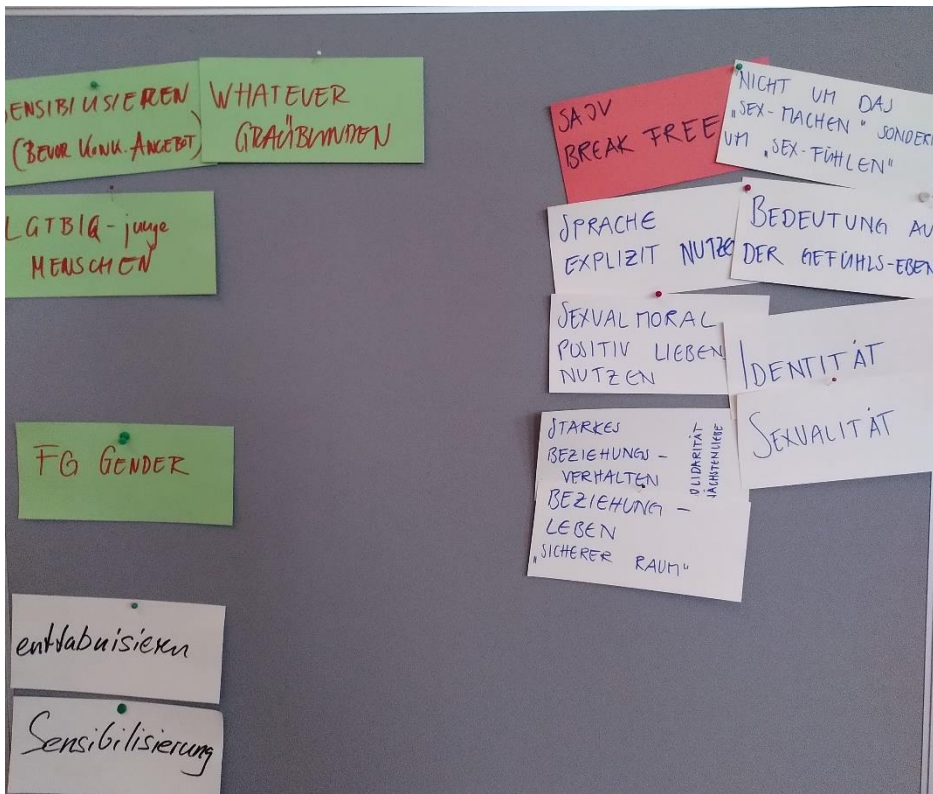 SENSIBILISIEREN
(BEVOR KONK. ANGEBOT)
WHATEVER
GRAÜBÜNDEN
LGTBIQ - junge
MENSCHEN
FG GENDER
enttabuisieren
Sensibilisierung
SAJV
BREAK FREE
NICHT UM DAS
„SEX-MACHEN" SONDERN
UM „SEX-FÜHLEN"
SPRACHE
EXPLIZIT NUTZE
BEDEUTUNG AU
DER GEFÜHLS-EBEN
SEXUALMORAL
POSITIV LIEBEN
NUTZEN
IDENTITÄT
SEXUALITÄT
STARKES
BEZIEHUNGS-
VERHALTEN
BEZIEHUNG -
LEBEN
„SICHERER RAUM"
OLIDARITÄT
NÄCHSTENLIEBE